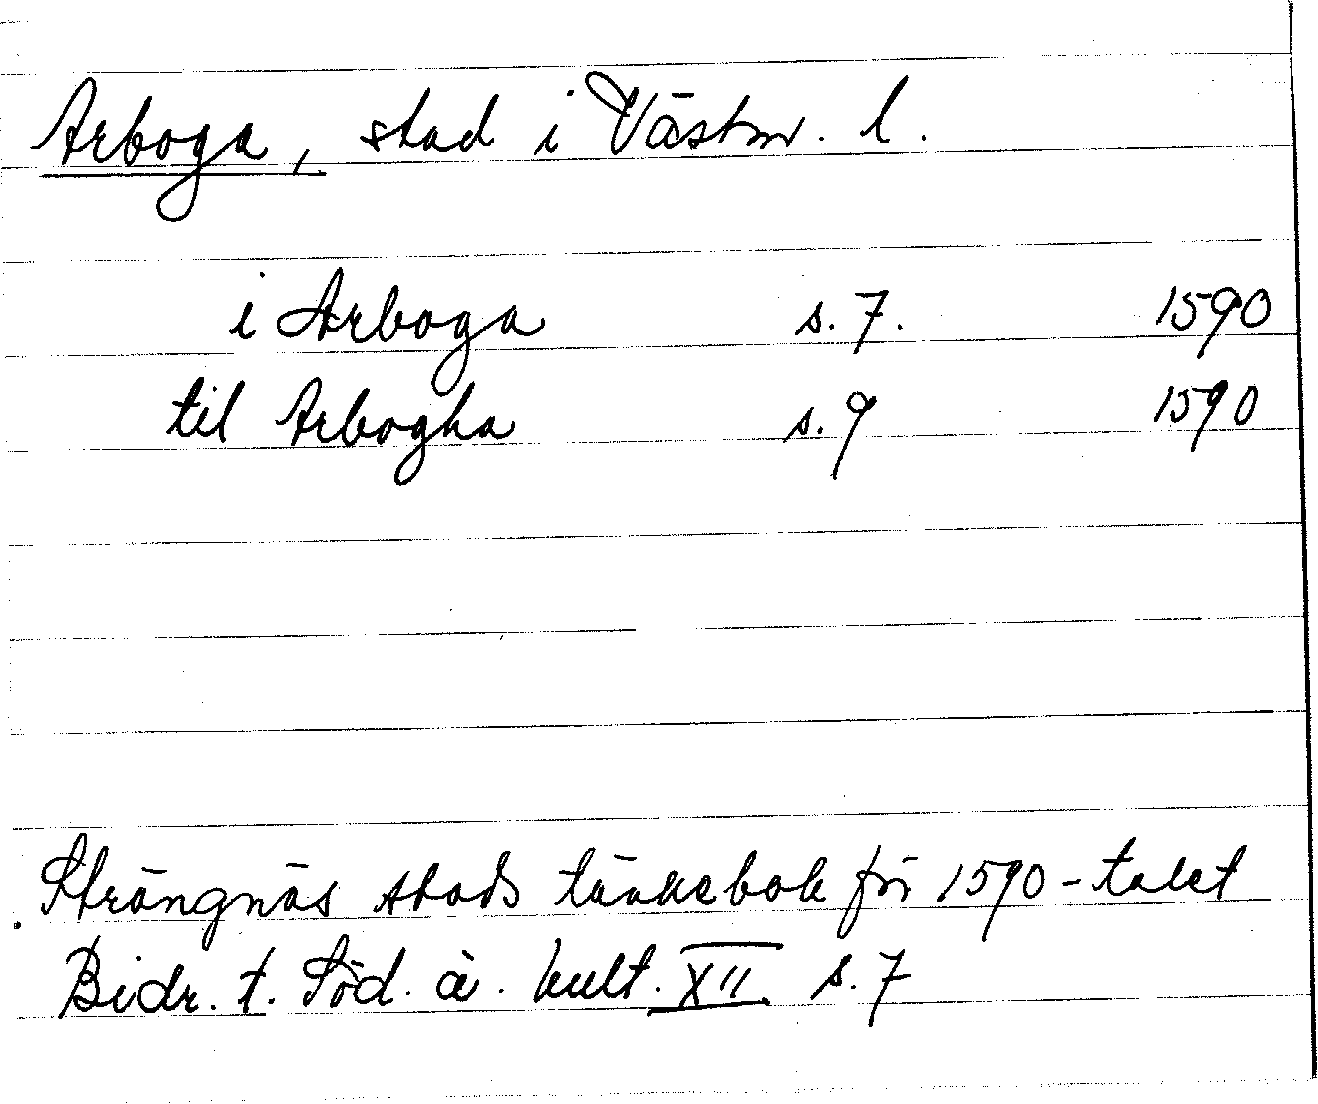 Arboga, stad i Västm. l.
i Arboga s. 7. 1590
til Arbogha s. 9 1590
Strängnäs stads tänkebok för 1590-talet
Bidr. t. Söd. ä. kult. XII s. 7